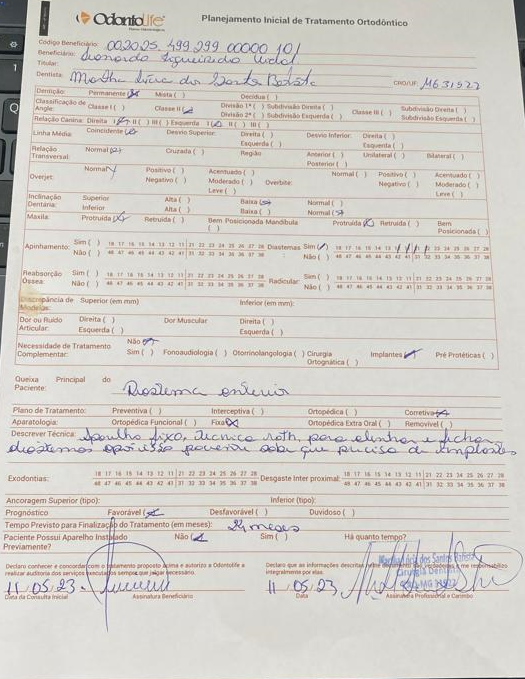 OdontoLife
Planejamento Inicial de Tratamento Ortodôntico
Código Beneficiário: 002025.499.299 00000 10/
Beneficiário: Leonardo Figueiredo Vidal
Titular:
Dentista: Martha Lúcia dos Santos Batista CRO/UF: MG31922
Dentição: Permanente (X) Mista ( ) Decídua ( )
Classificação de Angle: Classe I ( ) Classe II (X) Divisão 1ª ( ) Subdivisão Direita ( ) Classe III ( ) Subdivisão Direita ( )
Divisão 2ª ( ) Subdivisão Esquerda ( ) Subdivisão Esquerda ( )
Relação Canina: Direita I (X) II ( ) III ( ) Esquerda I (X) II ( ) III ( )
Linha Média: Coincidente (X) Desvio Superior: Direita ( ) Desvio Inferior: Direita ( )
Esquerda ( ) Esquerda ( )
Relação Transversal: Normal (X) Cruzada ( ) Região Anterior ( ) Unilateral ( ) Bilateral ( )
Posterior ( )
Overjet: Normal Positivo ( ) Acentuado ( ) Overbite: Normal ( ) Positivo ( ) Acentuado ( )
Negativo ( ) Moderado ( ) Negativo ( ) Moderado ( )
Leve ( ) Leve ( )
Inclinação Dentária: Superior Alta ( ) Baixa Normal ( )
Inferior Alta ( ) Baixa ( ) Normal (X)
Maxila: Protruída (X) Retruída ( ) Bem Posicionada Mandíbula ( ) Protruída (X) Retruída ( ) Bem Posicionada ( )
Apinhamento: Sim ( ) 18 17 16 15 14 13 12 11 21 22 23 24 25 26 27 28 Diastemas: Sim (X) 18 17 16 15 14 24 25 26 27 28
Não ( ) 48 47 46 45 44 43 42 41 31 32 33 34 35 36 37 38 Não ( ) 48 47 46 45 44 43 42 41 31 32 33 34 35 36 37 38
Reabsorção Óssea: Sim ( ) 18 17 16 15 14 13 12 11 21 22 23 24 25 26 27 28 Radicular: Sim ( ) 18 17 16 15 14 13 12 11 21 22 23 24 25 26 27 28
Não ( ) 48 47 46 45 44 43 42 41 31 32 33 34 35 36 37 38 Não ( ) 48 47 46 45 44 43 42 41 31 32 33 34 35 36 37 38
Discrepância de Modelos: Superior (em mm) Inferior (em mm):
Dor ou Ruído Articular: Direita ( ) Dor Muscular Direita ( )
Esquerda ( ) Esquerda ( )
Necessidade de Tratamento Complementar: Não
Sim ( ) Fonoaudiologia ( ) Otorrinolangologia ( ) Cirurgia Ortognática ( ) Implantes (X) Pré Protéticas ( )
Queixa Principal do Paciente: Diastema anterior
Plano de Tratamento: Preventiva ( ) Interceptiva ( ) Ortopédica ( ) Corretiva (X)
Aparatologia: Ortopédica Funcional ( ) Fixa (X) Ortopédica Extra Oral ( ) Removível ( )
Descrever Técnica: Aparelho fixo, tecnica roth, para alinhar e fechar
diastemas paciente sabe que precisa de implantes
Exodontias: 18 17 16 15 14 13 12 11 21 22 23 24 25 26 27 28 Desgaste Inter proximal: 18 17 16 15 14 13 12 11 21 22 23 24 25 26 27 28
48 47 46 45 44 43 42 41 31 32 33 34 35 36 37 38 48 47 46 45 44 43 42 41 31 32 33 34 35 36 37 38
Ancoragem Superior (tipo): Inferior (tipo):
Prognóstico Favorável (X) Desfavorável ( ) Duvidoso ( )
Tempo Previsto para Finalização do Tratamento (em meses): 24 meses
Paciente Possui Aparelho Instalado Previamente? Não (X) Sim ( ) Há quanto tempo?
Declaro conhecer e concordar com o tratamento proposto acima e autorizo a Odontolife a realizar auditoria dos serviços
Declaro que as informações descritas são verdadeiras e me responsabilizo integralmente por elas.
Martha Lúcia dos Santos Batista
Cirurgiã Dentista
11.05.23
11.05.23
Data da Consulta Inicial Assinatura Beneficiário Data Assinatura Profissional e Carimbo